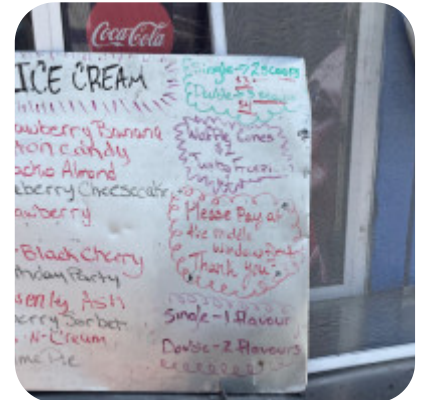 Coca-Cola
ICE CREAM
awberry Banana
ton candy
achio Almond
eberry Cheesecake
awberry
-Black Cherry
thday Party
Ash
erry Sorbet
N-Cream
me Pie
Single-2 scoops
Double-3
Waffle Cones
$2
Please Pay at
the middle
window first
Thank you
Single-1 flavour
Double-2 flavours